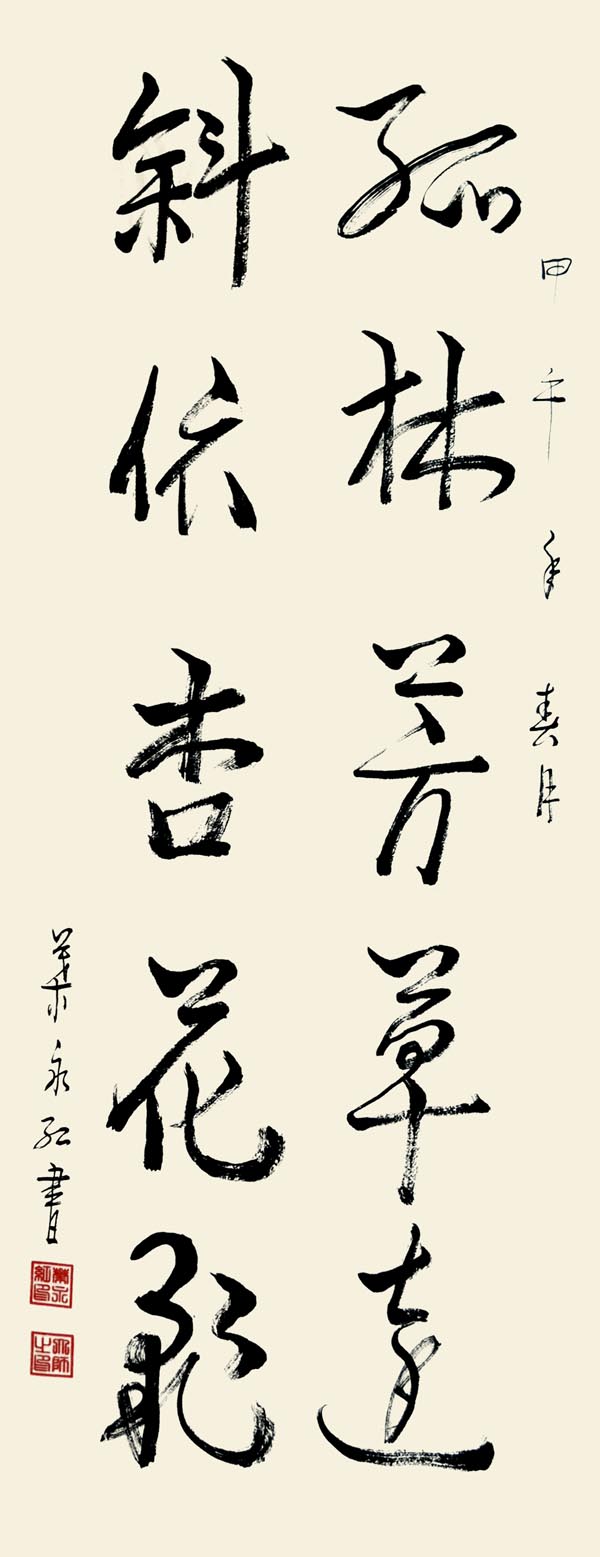 甲午年春月
孤林芳草遠
斜依杏花飛
葉永紅書